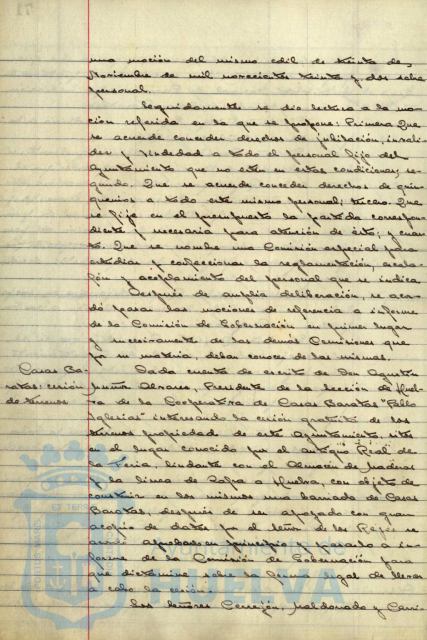 una moción del mismo edil de treinta de
Noviembre de mil novecientos treinta y dos sobre
personal.
Seguidamente se dio lectura a la mo-
ción referida en la que se propone: Primera Que
se acuerde conceder derechos de jubilación, invali-
dez y viudedad a todo el personal fijo del
Ayuntamiento que no estén en estas condiciones; se-
gundo. Que se acuerde conceder derechos de quin-
quenios a todo este mismo personal; tercero. Que
se fije en el presupuesto la partida correspon-
diente y necesaria para atención de ésto; y cuar-
to. Que se nombre una Comisión especial para
estudiar y confeccionar la reglamentación, escala-
fón y acoplamiento del personal que se indica.
Después de amplia deliberación, se acor-
dó pasar las mociones de referencia a informe
de la Comisión de Gobernación en primer lugar
y sucesivamente de las demás Comisiones que
por su materia, deban conocer de las mismas.
Casas Ba-
ratas: cesión
de terrenos
Dada cuenta de escrito de Don Agustín
Muñoz Alvarez, Presidente de la Sección de Huel-
va de la Cooperativa de Casas Baratas "Pablo
Iglesias" interesando la cesión gratuita de los
terrenos propiedad de este Ayuntamiento, sitos
en el lugar conocido por el antiguo Real de
la Feria, lindante con el Almacén de Maderas
y la línea de Zafra a Huelva, con objeto de
construir en los mismos una barriada de Casas
Baratas, después de ser apoyado con gran
acopio de datos por el Señor de los Reyes se
acordó aprobarlo en principio y pasarlo a in-
forme de la Comisión de Gobernación para
que dictamine sobre la forma legal de llevar
a cabo la cesión.
Los Señores Cerrejón, Maldonado y Carri-